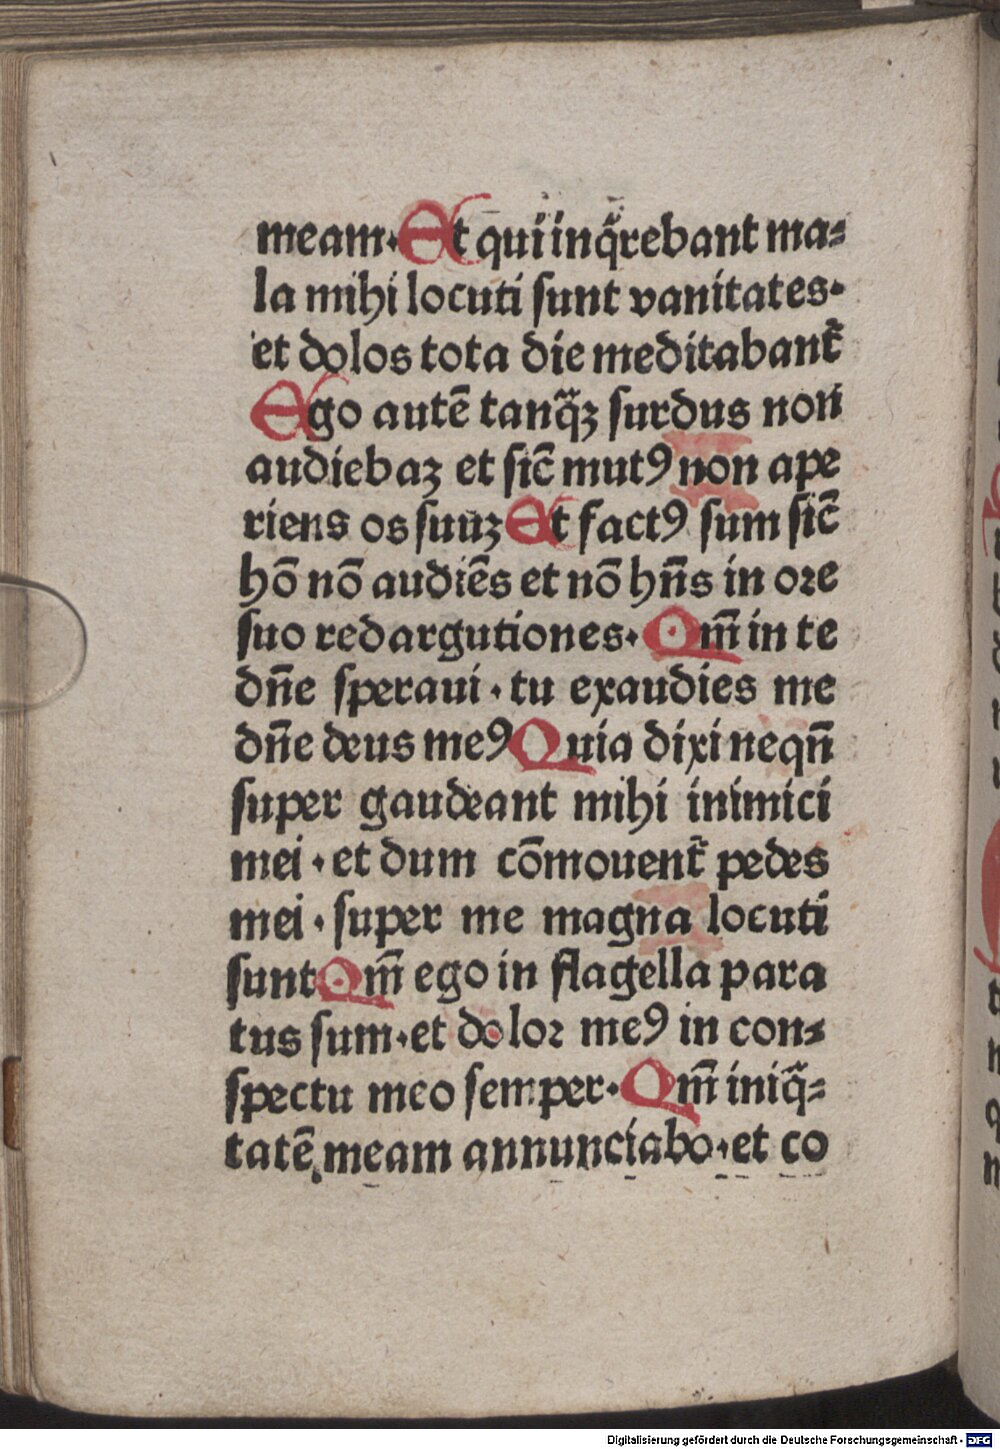 meam. Et qui inq̈rebant ma⸗
la mihi locuti sunt vanitates.
et dolos tota die meditabant᷑
Ego autē tanq̈ꝫ surdus non
audiebaꝫ et sic̄ mutꝰ non ape
riens os suuꝫ Et factꝰ sum sic̄
hō nō audiēs et nō hn̄s in ore
suo redargutiones. Qm̄ in te
dn̄e speraui. tu exaudies me
dn̄e deus meꝰ Quia dixi neqn̄
super gaudeant mihi inimici
mei. et dum cōmouent᷑ pedes
mei. super me magna locuti
sunt Qm̄ ego in flagella para
tus sum. et dolor meꝰ in con⸗
spectu meo semper. Qm̄ iniq̈⸗
tatē meam annunciabo. et co
Digitalisierung gefördert durch die Deutsche Forschungsgemeinschaft - DFG